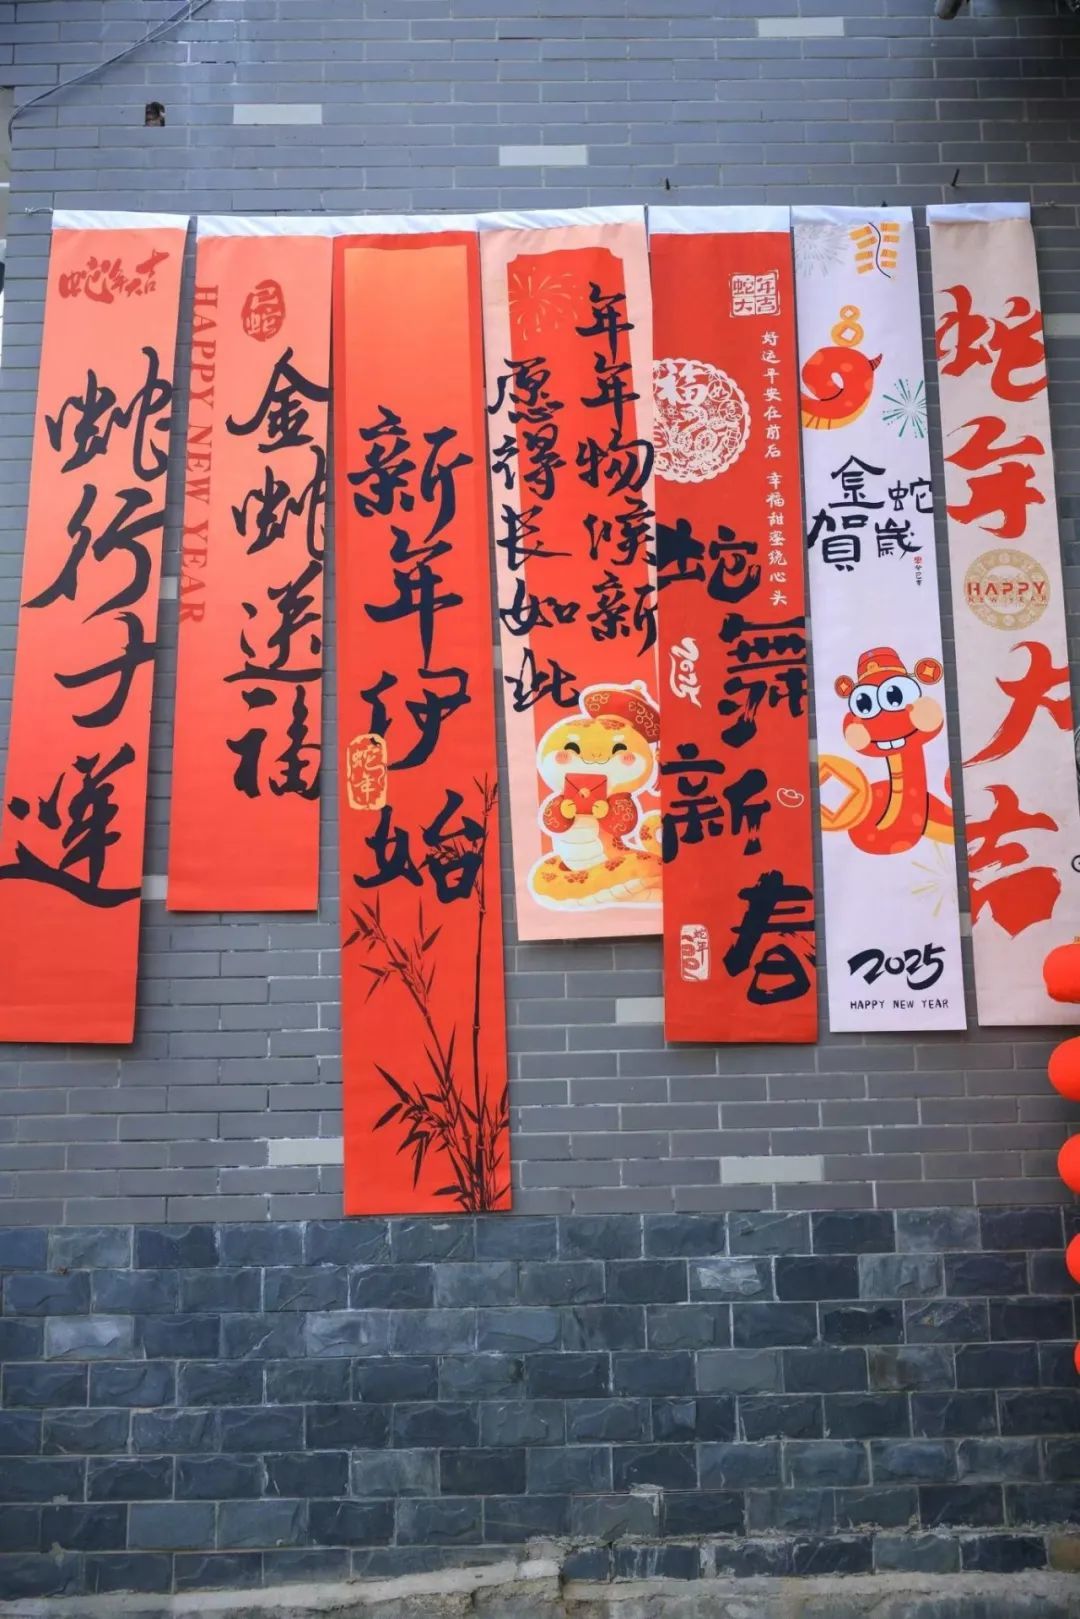 蛇年大吉
蛇行十運
巳蛇
HAPPY NEW YEAR
金蛇送福
新年伊始
蛇年
年年物候新
愿得长如此
蛇年
大吉
好运平安在前后 幸福甜蜜绕心头
福
蛇舞新春
2025
蛇年
金蛇
賀歲
2025
HAPPY NEW YEAR
蛇年大吉
HAPPY
NEW YEAR